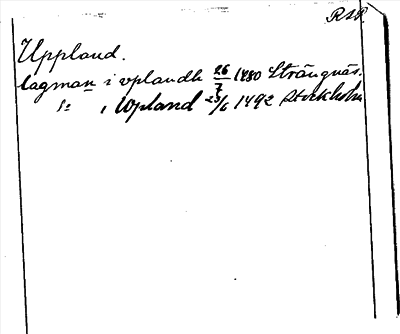 RAP.
Uppland.
lagman i vplandh 26/7 1480 Strängnäs.
D:o i Upland 23/6 1492 Stockholm